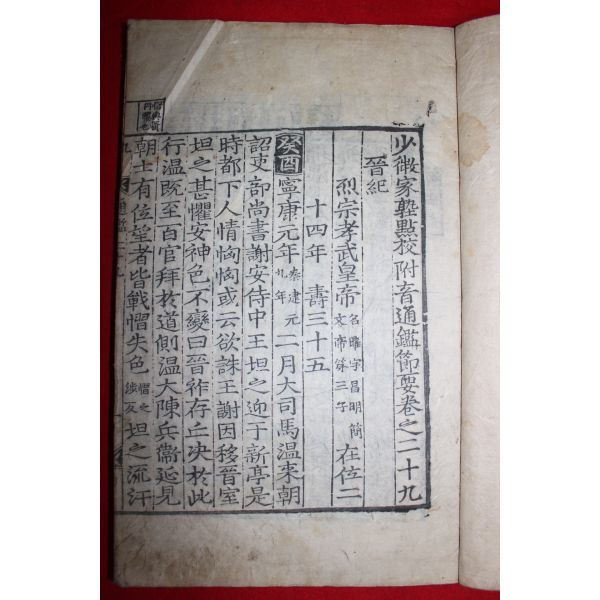 少微家塾點校附音通鑑節要卷之二十九
晉紀
烈宗孝武皇帝 名曜字昌明簡文帝第三子 在位二
十四年 壽三十五
癸酉 寧康元年 秦建元九年 二月大司馬温來朝
詔吏部尚書謝安侍中王坦之迎于新亭是
時都下人情恟恟或云欲誅王謝因移晉室
坦之甚懼安神色不變曰晉祚存亡决於此
行温旣至百官拜於道側温大陳兵衞延見
朝士有位望者皆戰慴失色 慴之涉反 坦之流汗
通鑑二十九